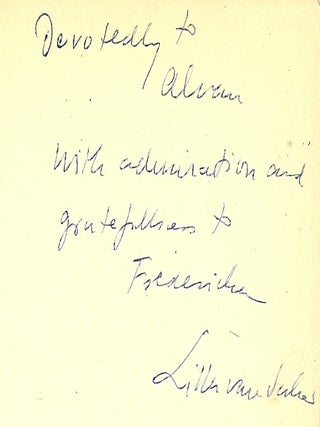 Devotedly to
Alvan
With admiration and
gratefullness to
Fredericka